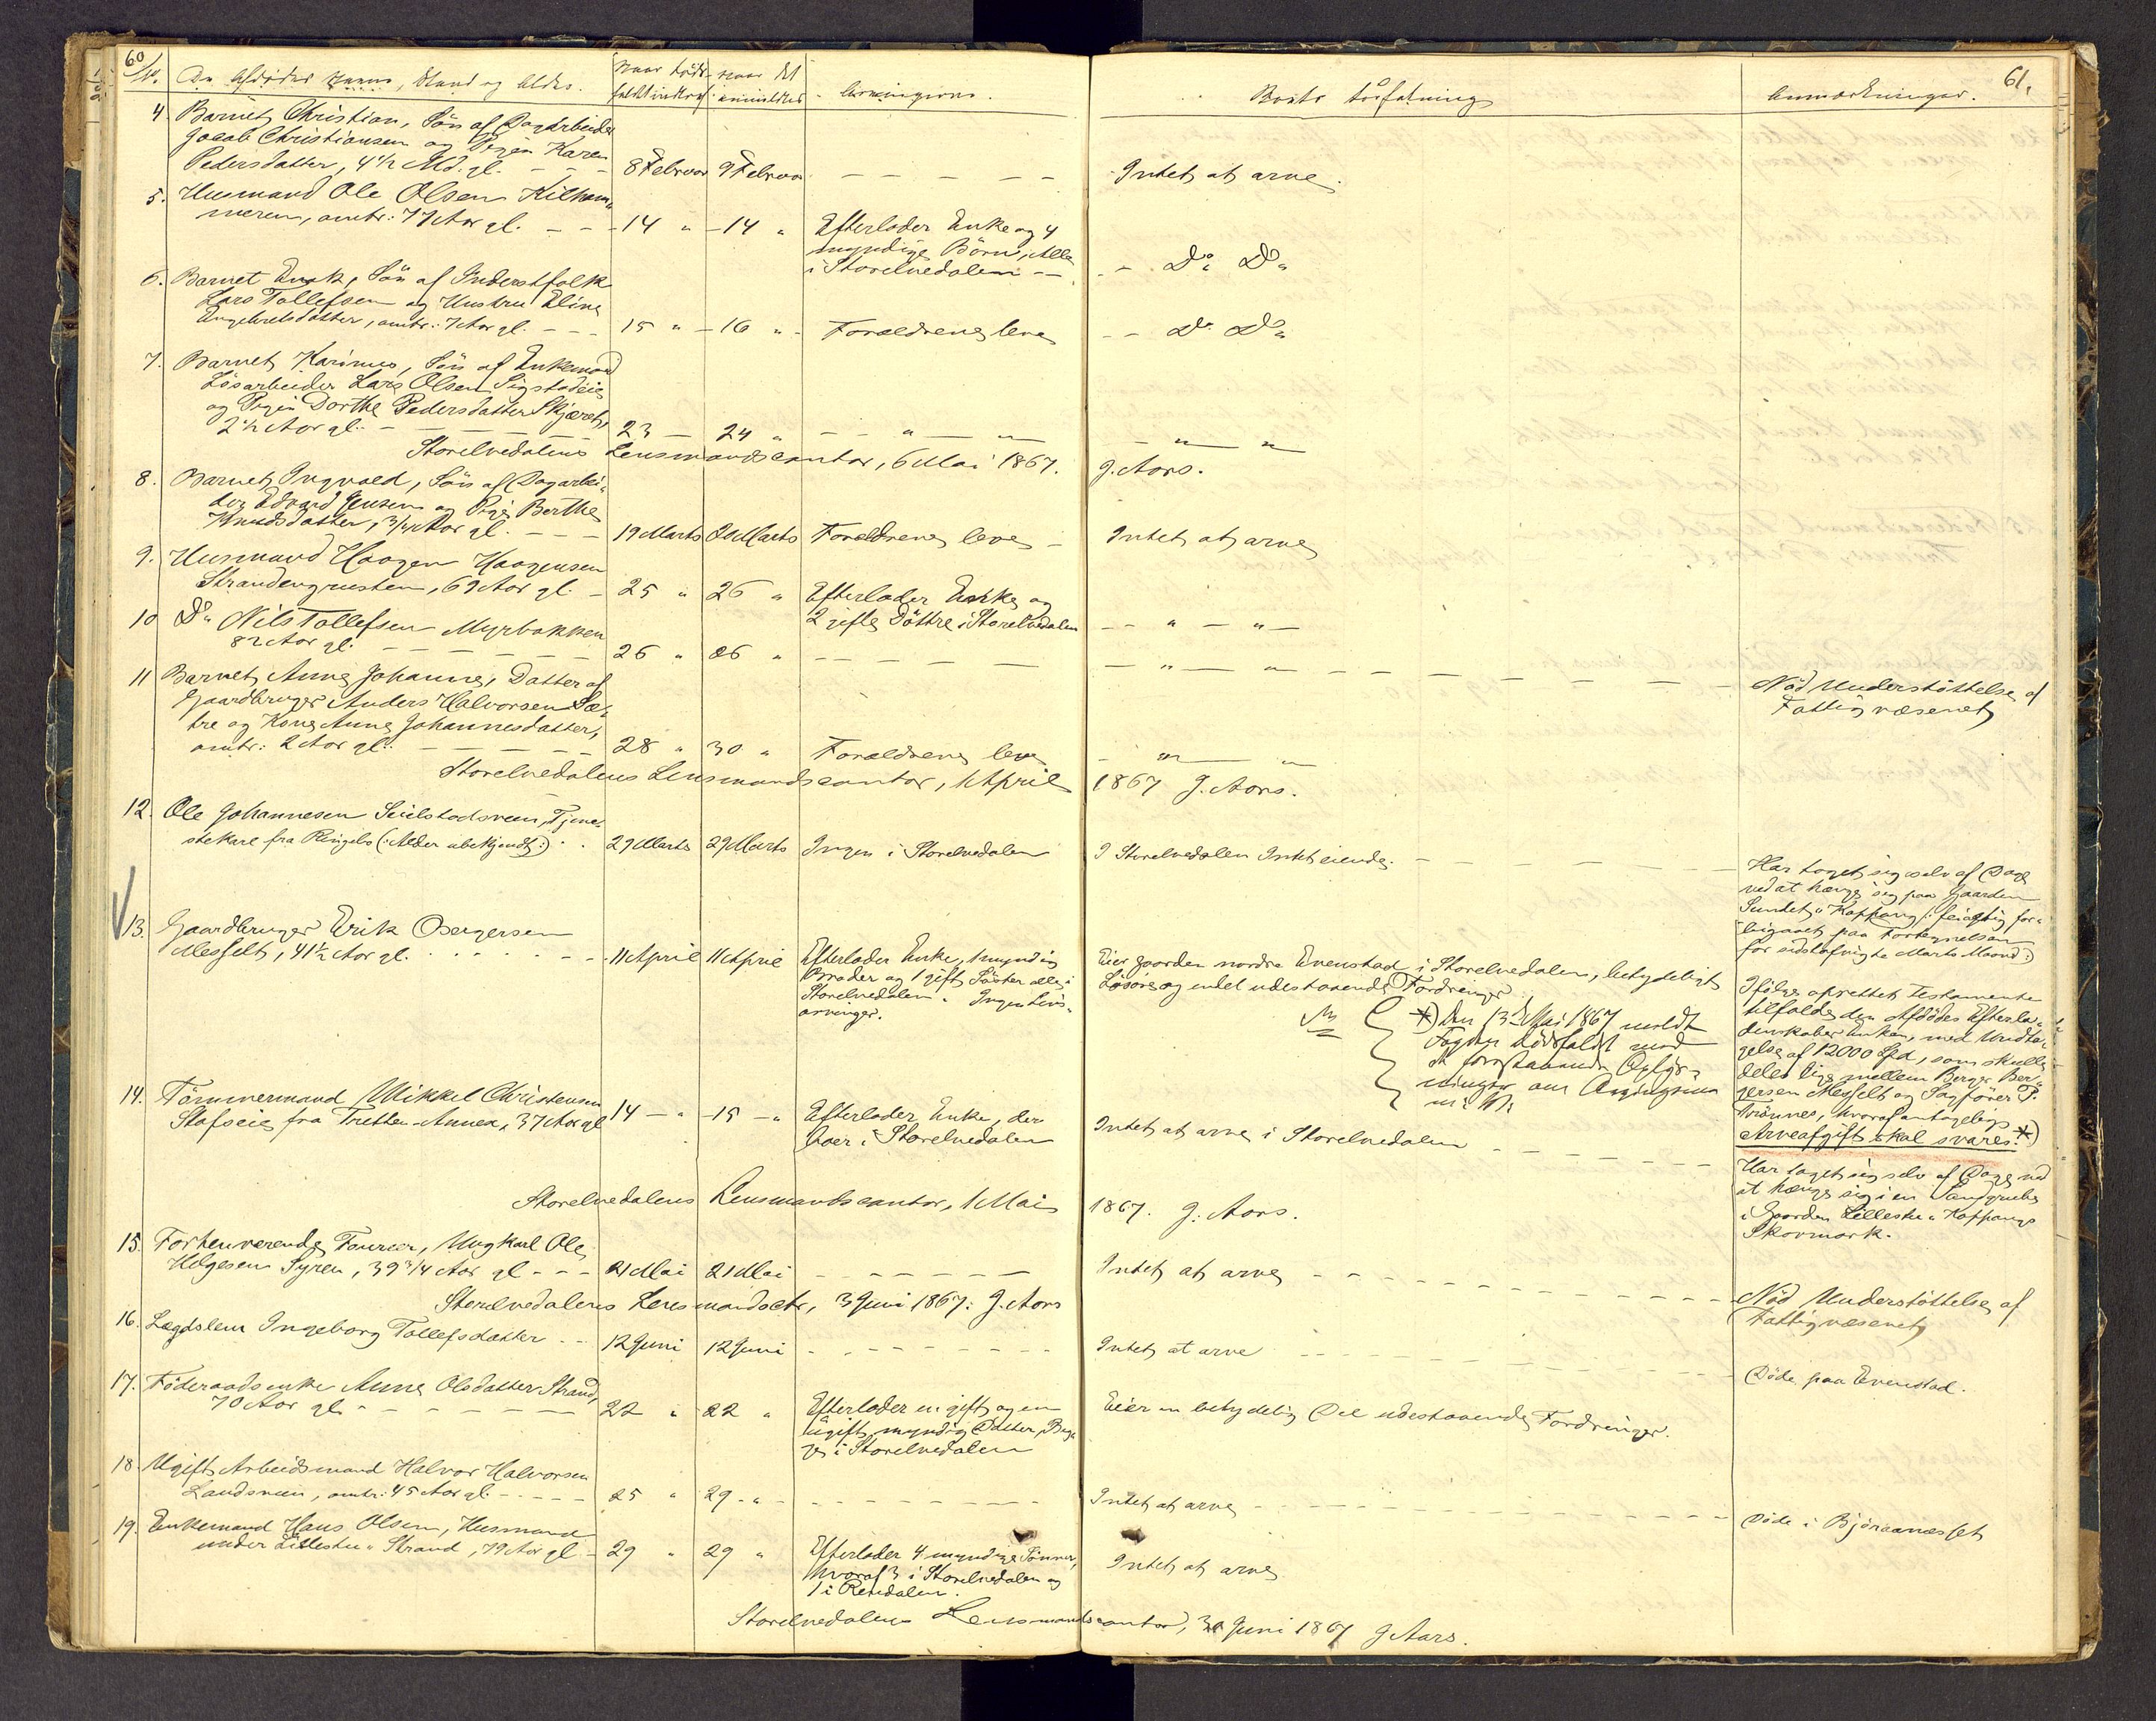 60
No. Den Afdødes Navn, Stand og Alder. Naar Døds- naar det
faldet indtraf anmeldtes Arvingerne.
4 Barnet Christian, Søn af Dagarbeider
Jacob Christiansen og Pigen Karen
Pedersdatter, 4 1/2 Md. gl. 8 Februar 9 Februar
5. Husmand Ole Olsen Kilham=
meren, omtr: 77 Aar gl. 14 " 14 " Efterlader Enke og 4
myndige Børn, Alle
i Storelvedalen
6. Barnet Enok, Søn af Inderstfolk
Lars Tollefsen og Hustru Eline
Engebretsdatter, omtr: 7 Aar gl. 15 " 16 " Forældrene leve
7. Barnet Karinus, Søn af Enkemand
Løsarbeider Lars Olsen Sigstadeie
og Pigen Dorthe Pedersdatter Skjæret,
2 1/2 Aar gl. 23 24 " " "
Storelvedalens Lensmandscontor, 6 Mai 1867.
8. Barnet Ingvald, Søn af Dagarbei=
der Edvard Jensen og Pige Berthe
Knudsdatter, 3/4 Aar gl. 19 Marts 20 Marts Forældrene leve
9. Husmand Haagen Haagensen
Strandengmoen, 69 Aar gl. 25 " 26 " Efterlader Enke og
2 gifte Døttre i Storelvedalen
10 Do Nils Tollefsen Myrbakken
82 Aar gl. 26 " 26 "
11 Barnet Anne Johanne, Datter af
Gaardbruger Anders Halvorsen Sæ=
tre og Kone Anne Johannesdatter,
omtr: 2 Aar gl. 28 " 30 " Forældrene leve
Storelvedalens Lensmandscontor, 1 April
12. Ole Johannesen Seielstadsveen, Tjene=
stekarl fra Ringebo (: Alder ubekjendt:) 29 Marts 29 Marts Ingen i Storelvedalen
13. Gaardbruger Erik Bergersen
Messelt, 41 1/2 Aar gl. 11 April 11 April Efterlader Enke, 1 myndig
Broder og 1 gift Søster alle i
Storelvedalen. Ingen Livs=
arvinger.
14. Tømmermand Mikkel Christensen
Stafseie fra Tretten Annex, 37 Aar gl 14 " 15 " Efterlader Enke, der
boer i Storelvedalen
Storelvedalens Lensmandscontor, 1 Mai
15. Forhenværende Fourer, Ungkarl Ole
Helgesen Syren, 39 3/4 Aar gl 21 Mai 21 Mai
Storelvedalens Lensmandsctr, 3 Juni 1867: J. Aars
16. Lægdslem Ingeborg Tollefsdatter 12 Juni 12 Juni
17. Føderaadsenke Anne Olsdatter Strand,
70 Aar gl. 22 " 22 " Efterlader en gift og en
ugift myndig Datter, Beg=
ge i Storelvedalen
18. Ugift Arbeidsmand Halvor Halvorsen
Landsveen, omtr: 45 Aar gl. 25 " 29 "
19. Enkemand Hans Olsen, Husmand
under Lillestu " Strand, 79 Aar gl 29 " 29 " Efterlader 4 myndige Sønner,
hvoraf 3 i Storelvedalen og
1 i Rendalen.
Storelvedalens Lensmandscontor, 30 Juni 1867 J Aars.
61.
Boets Forfatning Anmærkninger.
Intet at arve.
Do Do
Do Do
" "
J. Aars.
Intet at arve
" "
" " Nød Understøttelse af
Fattigvæsenet
" "
1867 J. Aars.
I Storelvedalen Intet eiende. Har taget sig selv af Dage
ved at hænge sig paa Gaarden
Sundet " Koppang (: feilagtig for=
bigaaet paa Fortegnelsen
for sidstafvigte Marts Maaned:)
Eier gaarden nordre Evenstad i Storelvedalen, betydeligt
Løsøre og endel udestaaende Fordringer
*) Den 13de Mai 1867 meldt
Fogden Dødsfaldet med
de forestaaende Oplys=
ninger
Ifølge oprettet Testamente
tilfalder den Afdødes Efterla=
denskaber Enken, med Undta=
gelse af 12000 Spd, som skulle
deles lige mellem Berger Ber=
gersen Messelt og Sagfører P.
Trønnes, hvoraf antagelig
Arveafgift skal svares. *)
Intet at arve i Storelvedalen
Har taget sig selv af Dage ved
at hænge sig i en Sandgrube
i Gaarden Lillestu " Koppangs
Skovmark.
1867. J. Aars.
Intet at arve Nød Understøttelse af
Fattigvæsenet
Intet at arve Døde paa Evenstad.
Eier en betydelig Del udestaaende Fordringer.
Intet at arve Døde i Bjøraanæsset
Intet at arve